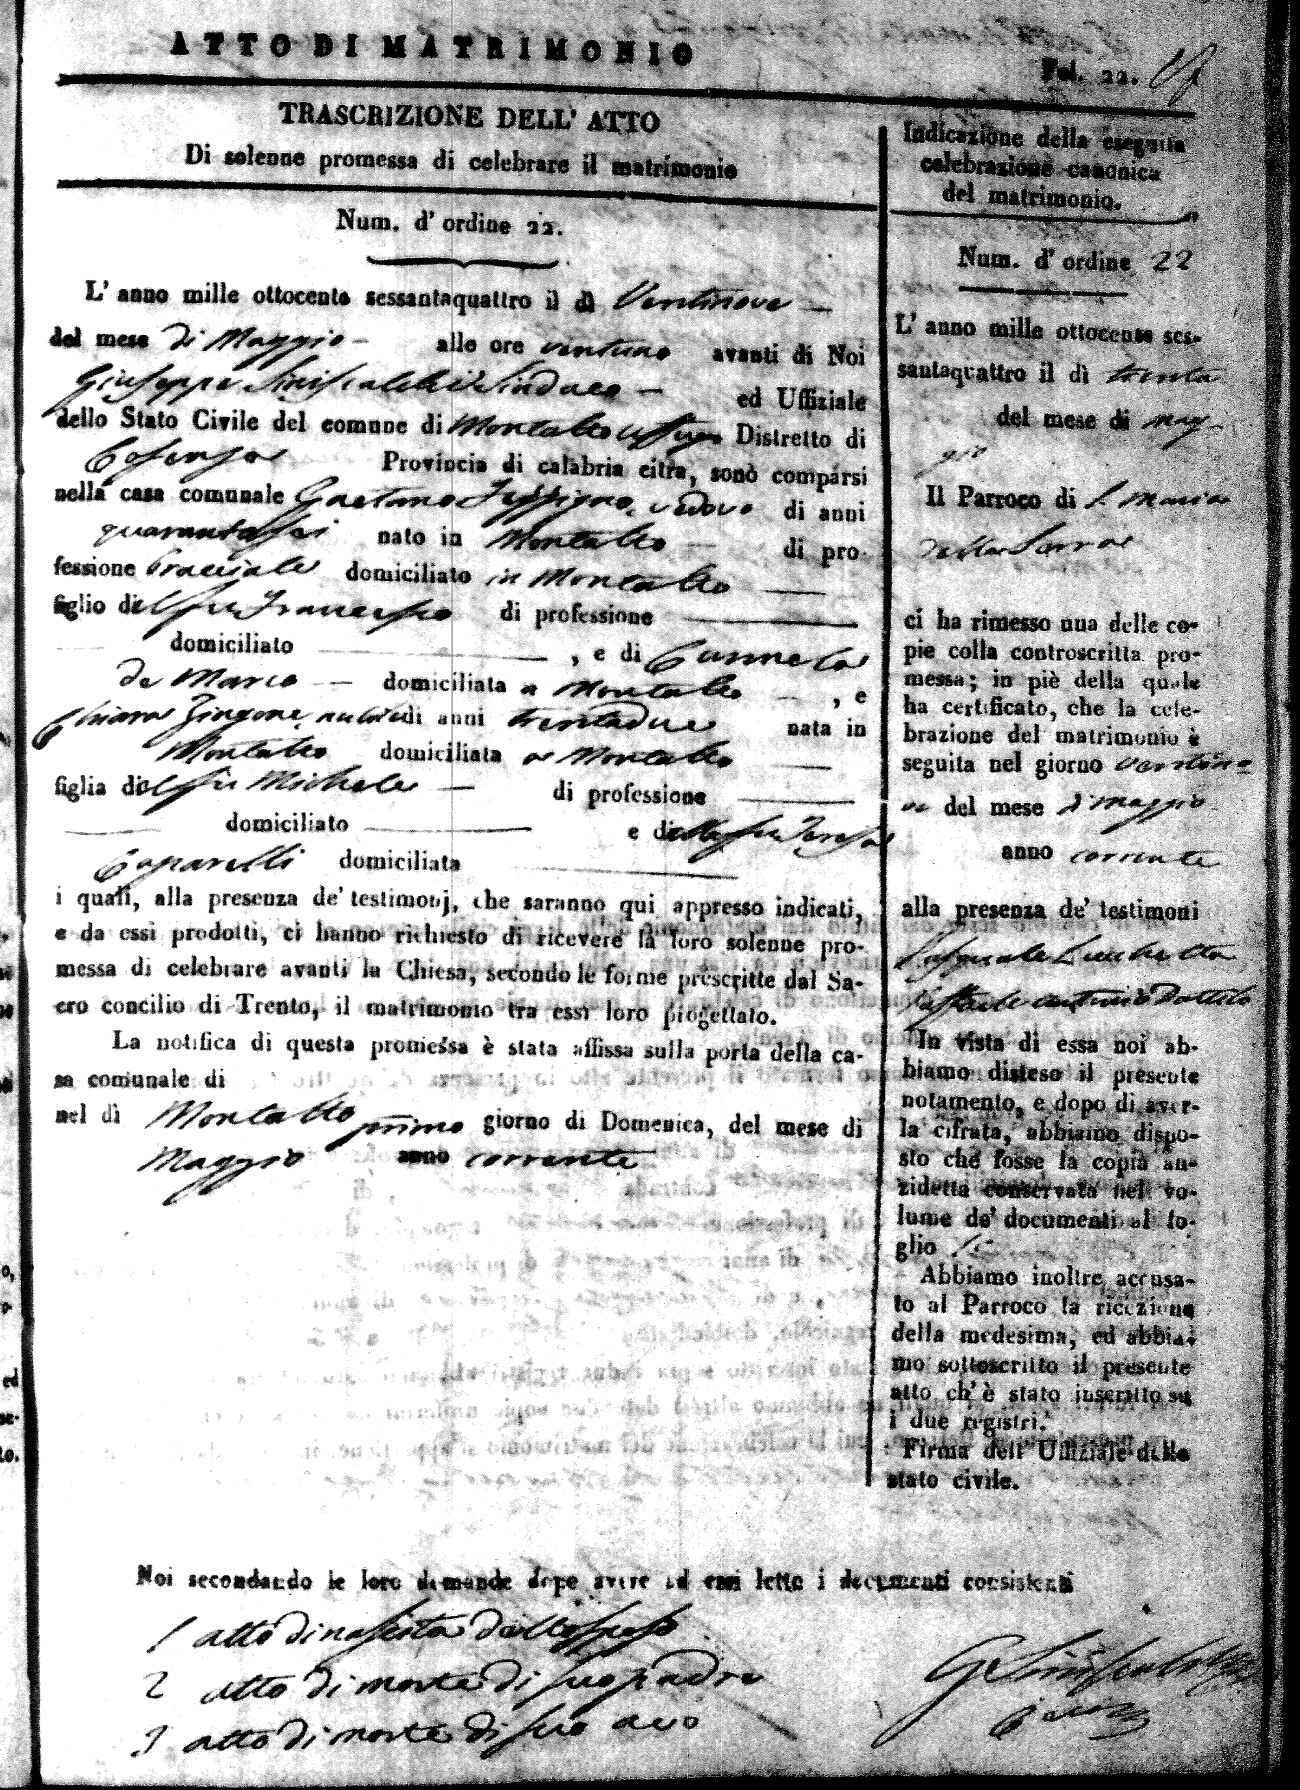 ATTO DI MATRIMONIO
Fol. 22.
TRASCRIZIONE DELL' ATTO
Di solenne promessa di celebrare il matrimonio
Num. d' ordine 22.
L' anno mille ottocento sessantaquattro il dì Ventinove
del mese di Maggio alle ore ventuno avanti di Noi
Giuseppe Siniscalchi Sindaco ed Uffiziale
dello Stato Civile del comune di Montalto Uffugo Distretto di
Cosenza Provincia di calabria citra, sonò comparsi
nella casa comunale Gaetano vedovo di anni
quarantasei nato in Montalto di pro-
fessione bracciale domiciliato in Montalto
figlio del fu Francesco di professione
domiciliato , e di Carmela
de Marco domiciliata a Montalto , e
Chiara Zingone nubile di anni trentadue nata in
Montalto domiciliata a Montalto
figlia del fu Michele di professione
domiciliato e della fu Teresa
Caparelli domiciliata
i quali, alla presenza de' testimonj, che saranno qui appresso indicati,
e da essi prodotti, ci hanno richiesto di ricevere la loro solenne pro-
messa di celebrare avanti la Chiesa, secondo le forme prescritte dal Sa-
cro concilio di Trento, il matrimonio tra essi loro progettato.
La notifica di questa promessa è stata affissa sulla porta della ca-
sa comunale di
nel dì Montalto primo giorno di Domenica, del mese di
Maggio anno corrente
Noi secondando le loro demande dopo avere ad essi letto i documenti consistenti
1 atto di nascita dello sposo
2 atto di morte di suo padre
3 atto di morte di suo avo
Indicazione della eseguita
celebrazione canonica
del matrimonio.
Num. d' ordine 22
L' anno mille ottocento ses-
santaquattro il dì trenta
del mese di mag
gio
Il Parroco di S. Maria
della Serra
ci ha rimesso una delle co-
pie colla controscritta pro-
messa; in piè della quale
ha certificato, che la cele-
brazione del matrimonio è
seguita nel giorno ventino
ve del mese di maggio
anno corrente
alla presenza de' testimoni
Pasquale Lucchetta
Raffaele Antonio Dottilo
In vista di essa noi ab-
biamo disteso il presente
notamento, e dopo di aver-
la cifrata, abbiamo dispo-
sto che fosse la copia an-
zidetta conservata nel vo-
lume de' documenti al fo-
glio
Abbiamo inoltre accusa-
to al Parroco la ricezione
della medesima, ed abbia-
mo sottoscritto il presente
atto ch' è stato inscritto su
i due registri.
Firma dell' Uffiziale dello
stato civile.
G Siniscalchi